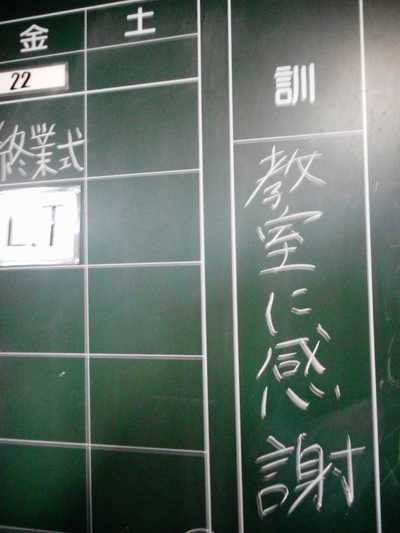 金 土
22
終業式
L.T
訓
教室に感謝